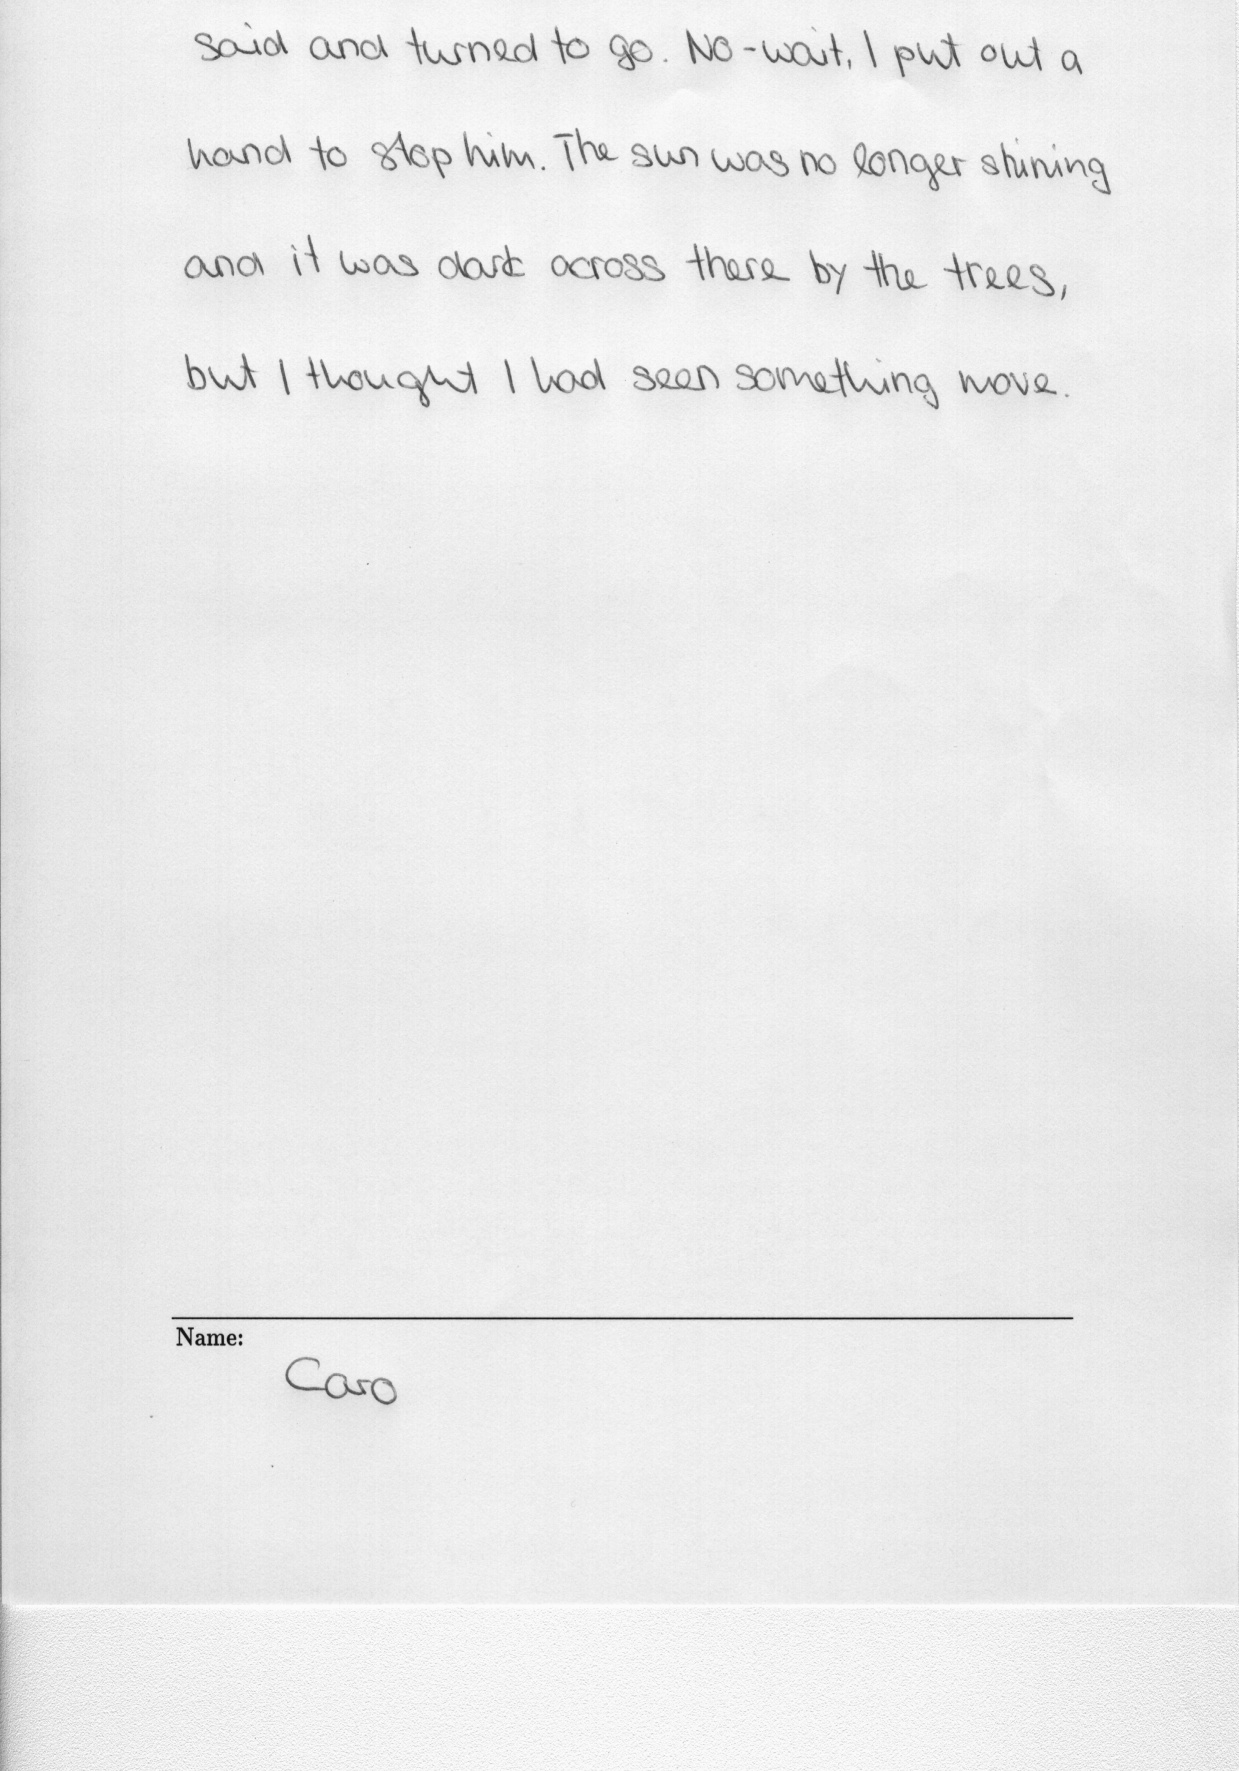 said and turned to go. No-wait, I put out a
hand to stop him. The sun was no longer shining
and it was dark across there by the trees,
but I thought I had seen something move.
Name:
Caro